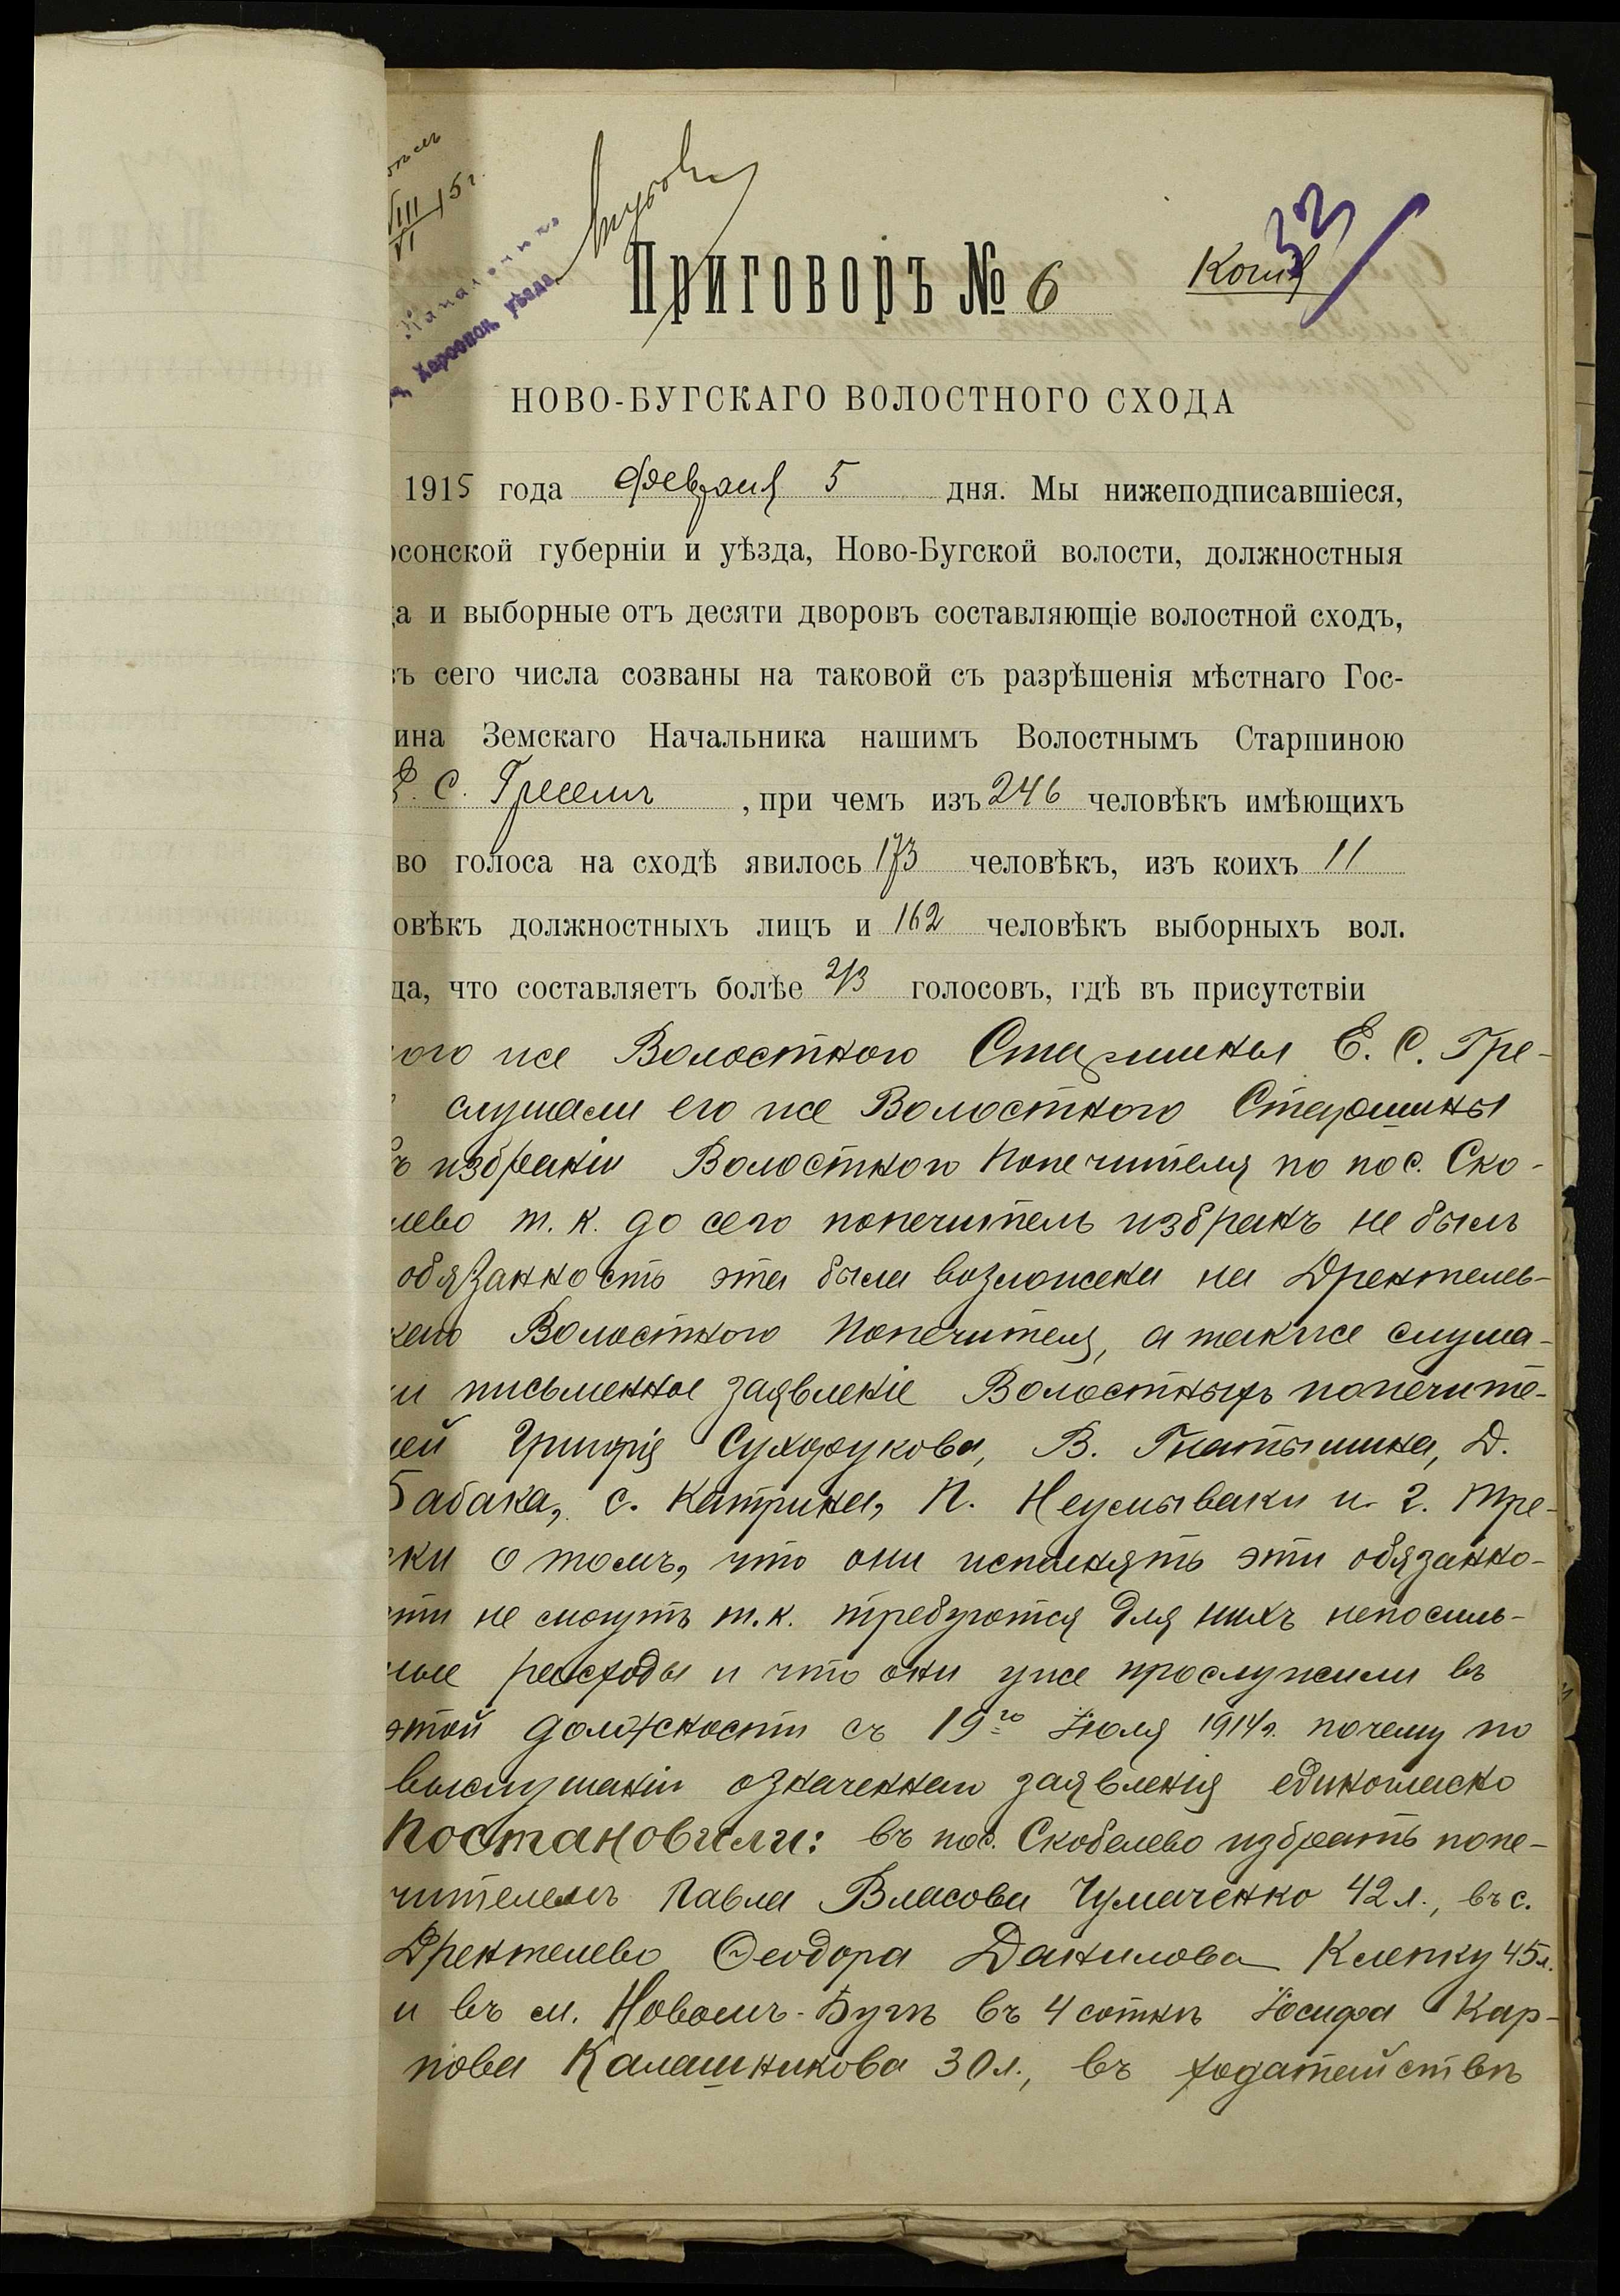 VIII 15 г.
VI
Херсонск. уѣзда
32
Копія
Приговоръ № 6
НОВО-БУГСКАГО ВОЛОСТНОГО СХОДА
1915 года Февраля 5 дня. Мы нижеподписавшіеся,
рсонской губерніи и уѣзда, Ново-Бугской волости, должностныя
ца и выборные отъ десяти дворовъ составляющіе волостной сходъ,
въ сего числа созваны на таковой съ разрѣшенія мѣстнаго Гос-
ина Земскаго Начальника нашимъ Волостнымъ Старшиною
Е. С. Гресемъ, при чемъ изъ 246 человѣкъ имѣющихъ
во голоса на сходѣ явилось 173 человѣкъ, изъ коихъ 11
овѣкъ должностныхъ лицъ и 162 человѣкъ выборныхъ вол.
да, что составляетъ болѣе 2/3 голосовъ, гдѣ въ присутствіи
ого же Волостного Старшины Е. С. Гре-
слушали его же Волостного Старшины
ъ избраніи Волостного Попечителя по пос. Ско-
лево т. к. до сего попечитель избранъ не былъ
обязанность эта была возложена на Дрентелев-
каго Волостного Попечителя, а также слуша-
и письменное заявленіе Волостныхъ попечите-
лей Григорія Сухорукова, В. Гнатышина, Д.
Бабака, С. Катрина, П. Неумываки и Г. Тре-
ки о томъ, что они исполнять эти обязанно-
сти не смогутъ т. к. требуются для нихъ непосиль-
ные расходы и что они уже прослужили въ
этой должности съ 19го Іюля 1914 г. почему по
выслушаніи означеннаго заявленія единогласно
Постановили: въ пос. Скобелево избрать попе-
чителемъ Павла Власова Чумаченко 42 л., въ с.
Дрентелево Ѳеодора Данилова Клепку 45 л.
и въ м. Новомъ-Бугѣ въ 4 соткѣ Іосифа Кар-
пова Калашникова 30 л., въ ходатайствѣ